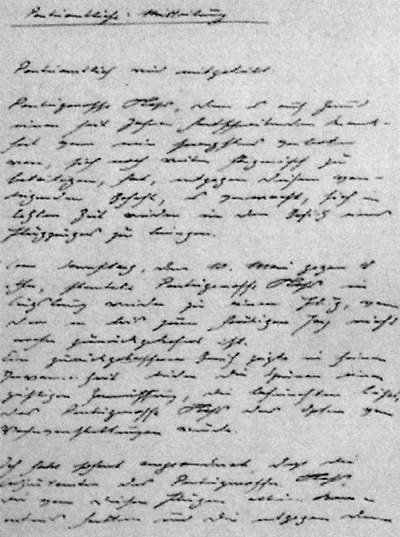 Parteiamtliche Mitteilung
Parteiamtlich wird mitgeteilt:
Parteigenosse Heß, dem es auf Grund
einer seit Jahren fortschreitenden Krank-
heit von mir strengstens verboten
war, sich noch weiter fliegerisch zu
betätigen, hat, entgegen diesem vor-
liegenden Befehl, es vermocht, sich in
letzter Zeit wieder in den Besitz eines
Flugzeuges zu bringen.
Am Samstag, den 10. Mai gegen
Uhr, startete Parteigenosse Heß in
Augsburg wieder zu einem Flug, von
dem er bis zum heutigen Tag nicht
mehr zurückgekehrt ist.
Ein zurückgelassener Brief zeigte in seiner
Verworrenheit leider die Spuren einer
geistigen Zerrüttung, die befürchten läßt,
das Parteigenosse Heß das Opfer von
Wahnvorstellungen wurde.
Ich habe sofort angeordnet, daß die
Adjutanten des Parteigenosse Heß,
die von diesen Flügen allein Kennt-
nis hatten und die entgegen dem